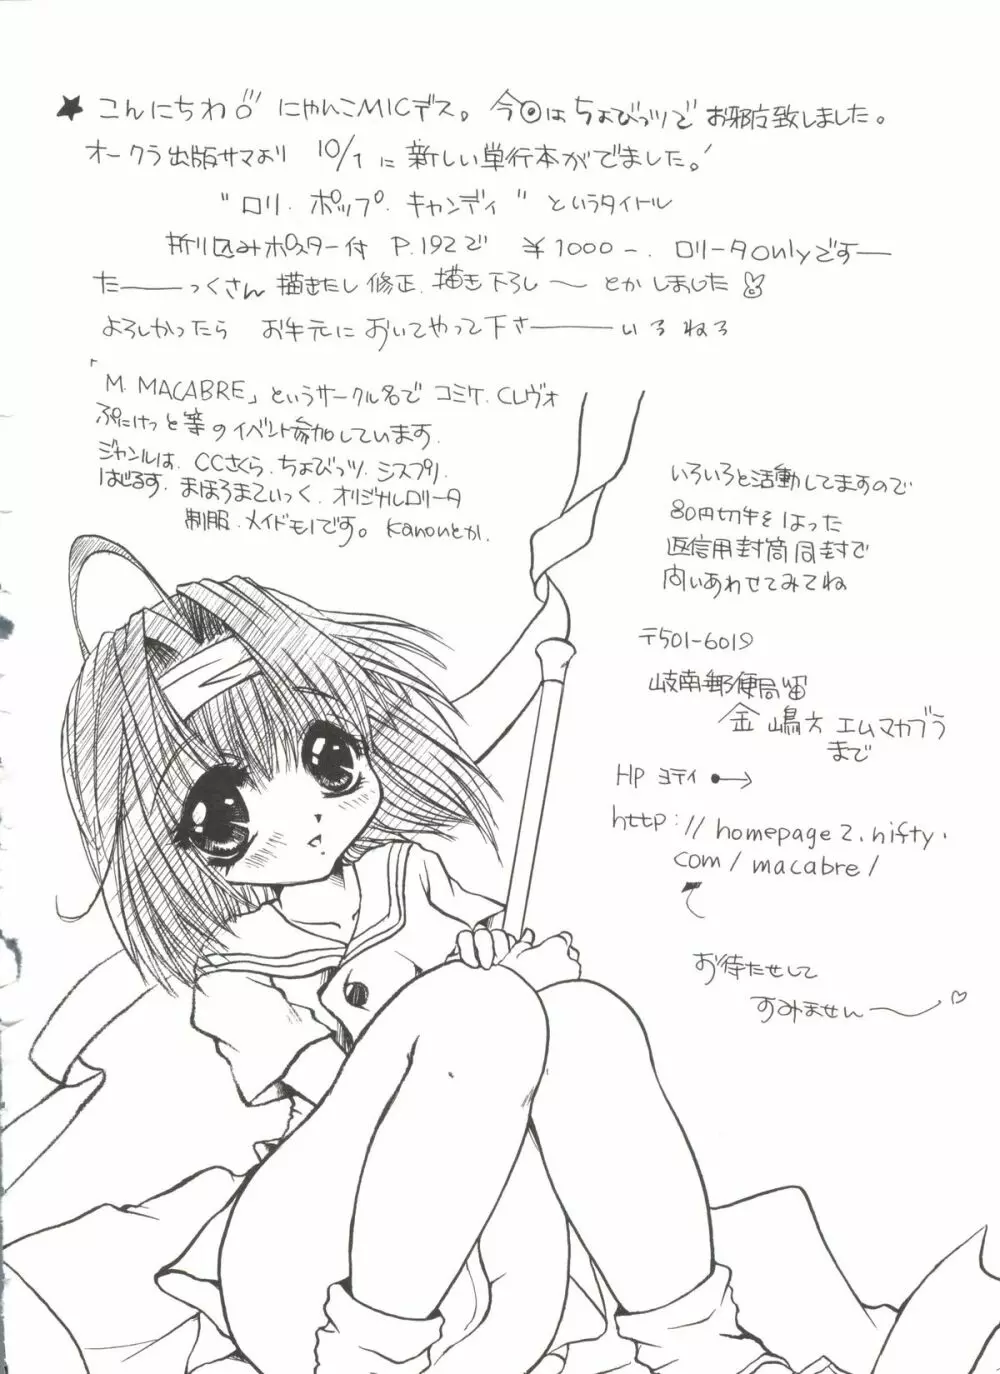 ★ こんにちわ にゃんこMICデス。今回はちょびっツでお邪广致しました。
オークラ出版サマより 10/1に新しい単行本がでました。!
"ロリ.ポップ.キャンディ" というタイトル
折り込みポスター付 P.192で ¥1000-. ロリータonlyですー
たーっくさん 描きたし 修正. 描き下ろし〜 とか しました
よろしかったら お手元に おいてやって下さーいろ ねろ
「M. MACABRE」というサークル名で コミケ. CLヴォ
ぷにけっと等のイベント参加しています.
ジャンルは. CCさくら. ちょびっツ. シスプリ.
はじるす. まほろまてぃっく. オリジナルロリータ
制服. メイドモノです。 Kanonとか.
いろいろと活動してますので
80円切手をはった
返信用封筒同封で
問いあわせてみてね
〒501-6019
岐南郵便局留
金嶋方 エムマカブラ
まで
HP ヨテイ ●→
http://homepage2.nifty.
com/macabre/
お待たせして
すみません〜♡